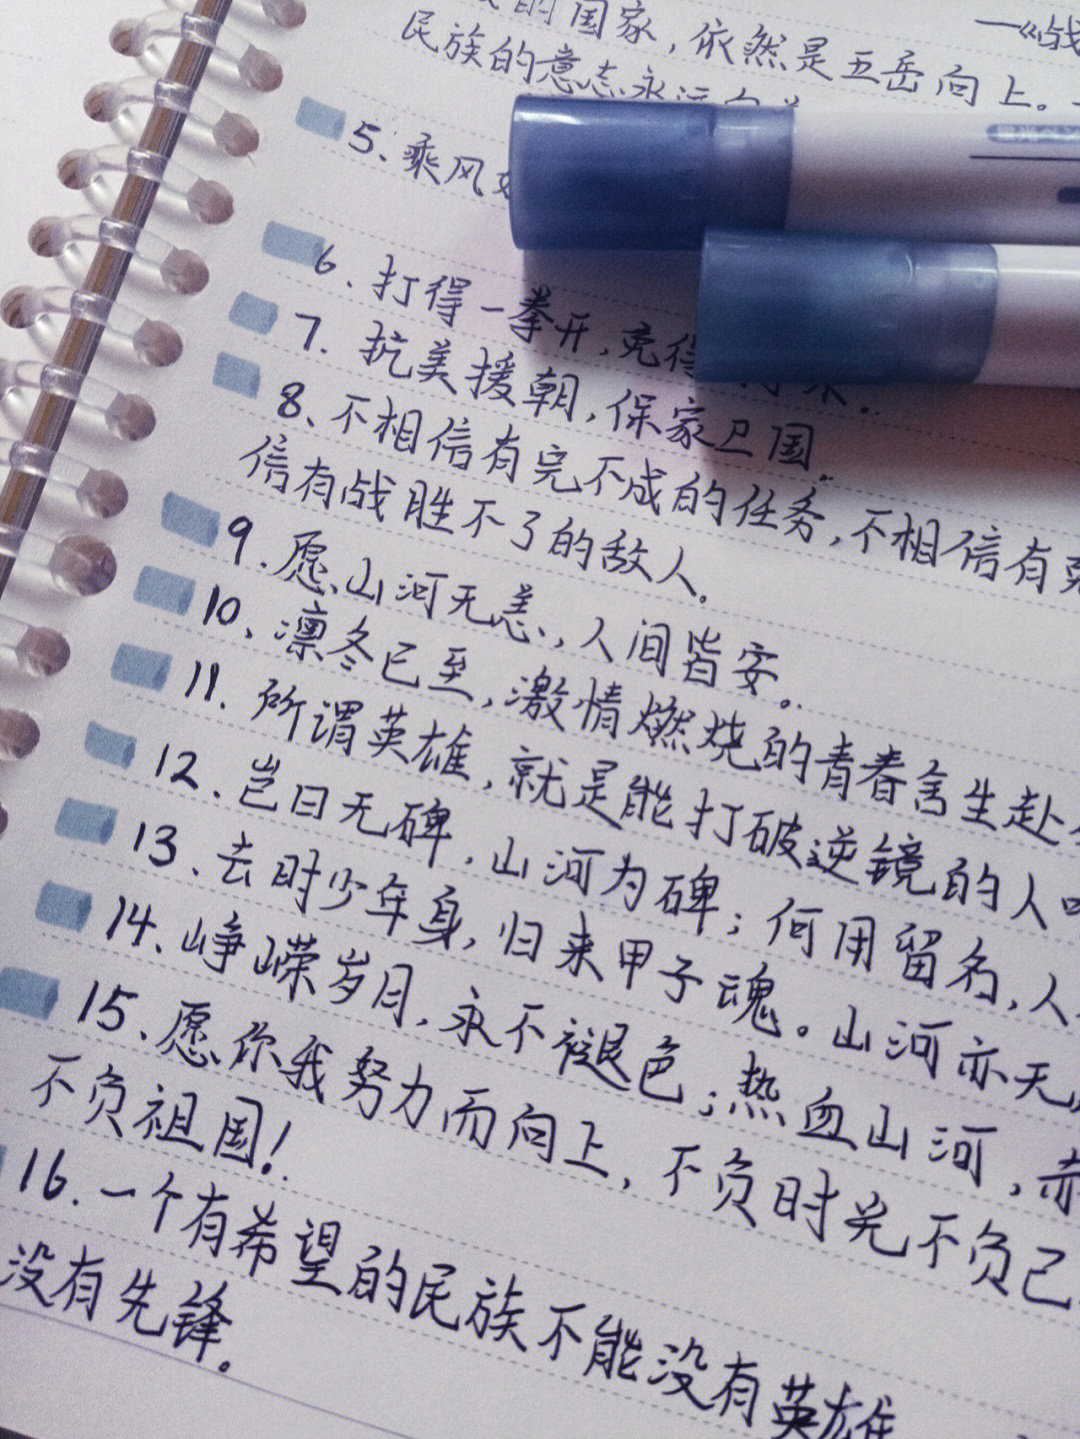 的国家，依然是五岳向上。
一《战
民族的意志永远向
5.乘风
6.打得一拳开，免得
7.抗美援朝，保家卫国。
8、不相信有完不成的任务，不相信有
信有战胜不了的敌人。
9.愿山河无恙，人间皆安。
10、凛冬已至，激情燃烧的青春舍生赴
11.所谓英雄，就是能打破逆镜的人
12.岂曰无碑，山河为碑；何用留名，人
13、去时少年身，归来甲子魂。山河亦无
14、峥嵘岁月，永不褪色；热血山河，赤
15、愿你我努力而向上，不负时光不负己
不负祖国！
16.一个有希望的民族不能没有英雄
没有先锋。